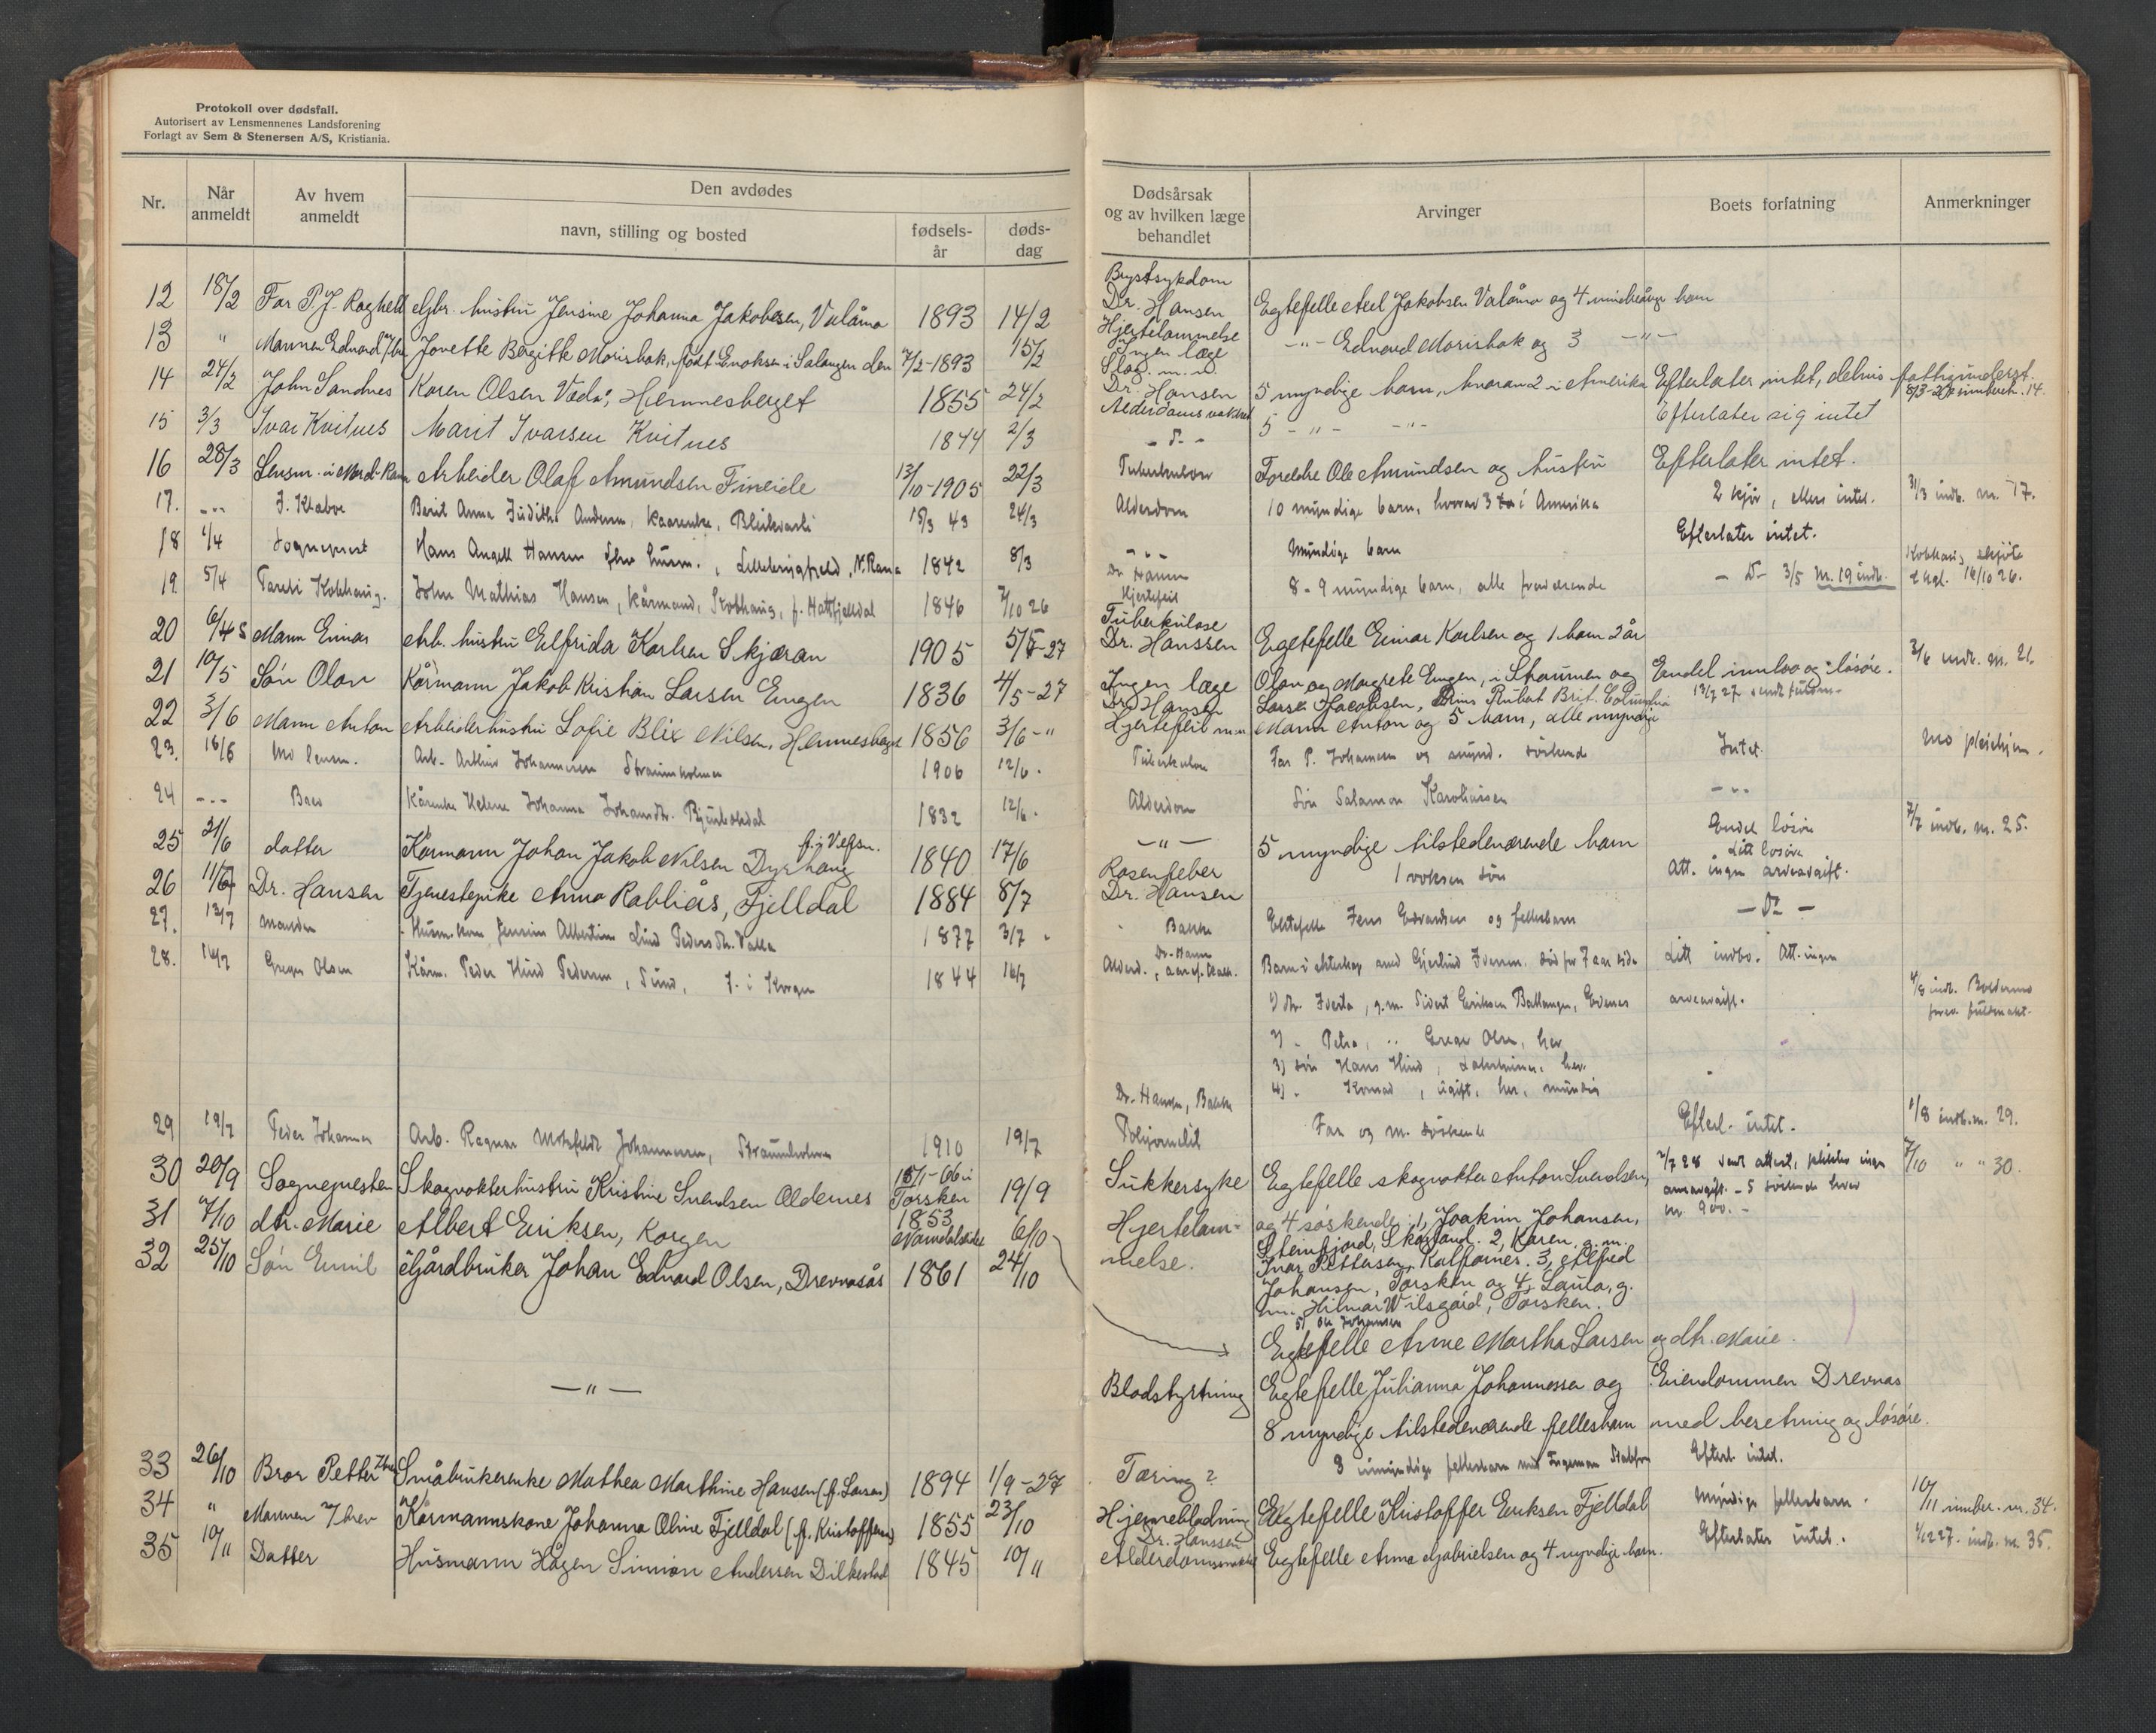 Protokoll over dødsfall.
Autorisert av Lensmennenes Landsforening
Forlagt av Sem & Stenersen A/S, Kristiania.
Nr. Når anmeldt Av hvem anmeldt Den avdødes navn, stilling og bosted fødselsår dødsdag Dødsårsak og av hvilken læge behandlet Arvinger Boets forfatning Anmerkninger
12 18/2 Far P. J. Gbr. hustru Jensine Johanna Jakobsen, Valåmo 1893 14/2 Brystsykdom Dr. Hansen Egtefelle Axel Jakobsen Valåmo og 4 mindreårige barn
13 " Mannen Edvard Jonette Bergitte Morisbak, født Enoksen i Salangen den 7/2-1893 15/2 Hjertelammelse Ingen læge -"- Edvard Morisbak og 3 -"-
14 24/2 John Sandnes Karen Olsen Veda, Hemnesberget 1855 24/2 Slag m. m. Dr. Hansen 5 myndige barn, hvorav 2 i Amerika Efterlater intet, delvis fattigunderst.
15 3/3 Ivar Kvitnes Marit Ivarsen Kvitnes 1844 2/3 Alderdomssvakhet 5 -"- -"- Efterlater sig intet
16 28/3 Lensm. i Nord-Rana Arbeider Olaf Amundsen Fineide 13/10-1905 22/3 Tuberkulose Foreldre Ole Amundsen og hustru Efterlater intet.
17. -"- J. Klaboe Berit Anna Judithe Andersen, kaarenke, Bleikvasli 15/3 43 24/3 Alderdom 10 myndige barn, hvorav 3 i Amerika 2 kjør, ellers intet. 31/3 indb. nr. 17.
18 1/4 Sogneprest Hans Angell Hansen, Lillebergfjeld, N. Rana 1842 8/3 -"- Myndige barn Efterlater intet.
19 5/4 Kobhaug. John Mathias Hansen, kårmand, Kobhaug, f. Hattfjelldal 1846 7/10 26 Dr. Hansen Hjertefeil 8-9 myndige barn, alle -d- 3/5 nr. 19 indb. Kobhaug skjøte 16/10 26.
20 6/4 Mann Einar Arb. hustru Elfrida Karlsen Skjæran 1905 5/5-27 Tuberkulose Dr. Hanssen Egtefelle Einar Karlsen og 1 barn 2 år
21 10/5 Søn Olav Kårmann Jakob Kristian Larsen Engen 1836 4/5-27 Ingen læge Olav og Magrete Engen, i Straumen og Lars Jacobsen, Prins Rubert Brit. Columbia Endel innbo og løsøre. 3/6 indb. nr. 21.
22 3/6 Mann Anton Arbeiderhustru Sofie Blix Nilsen, Hemnesberget 1856 3/6-" Dr. Hansen Hjertefeil m.m. Mann Anton og 5 barn, alle myndige
23. 16/6 Mo lensm. Arb. Arthur Johannesen Straumholmen 1906 12/6. Tuberkulose Far P. Johannesen og søskende Intet. Mo pleiehjem.
24 -"- Baes Kårenke Helene Johanna Johansdtr. Bjurbækdal 1832 12/6. Alderdom Søn Salamon Karolinssen -"-
25 21/6 datter Kårmann Johan Jakob Nilsen Dyrhaug f. i Vefsn. 1840 17/6 -"- 5 myndige tilstedeværende barn Endel løsøre 7/7 indb. nr. 25.
26 11/7 Dr. Hansen Tjenestepike Anna Rabliås, Fjelldal 1884 8/7 Rosenfeber Dr. Hansen 1 voksen søn Litt løsøre Att. ingen arveavgift.
27. 13/7 manden Husm. kone Jensine Albertine Lind Pedersdtr. Valla 1877 3/7 Bakke Ektefelle Jens Edvardsen og fellesbarn -d-
28. 16/7 Greger Olsen Kårm. Peder Hind Pedersen, Sund, f. i Korgen 1844 16/7 Alderd., Dr. Hansen Barn i ekteskap med Gjertrud Iversen død for 7 aar siden Litt indbo. Att. ingen arveavgift.
1) dtr. Iverta, g.m. Sivert Eriksen Ballangen, Evenes
2) - Petra, " Greger Olsen, her.
3) søn Hans Hind, her.
4) - Konrad, ugift, her, myndig
29 19/7 Peder Johannes Arb. Ragnar Motzfeldt Johannessen, Straumholmen 1910 19/7 Dr. Hansen, Bakke Poliomelit Far og m. søskende Efterl. intet. 1/8 indb. nr. 29.
30 20/9 Sognepresten Skogvokterhustru Kristine Svendsen Oldernes 18/1-66 i Torsken 19/9 Sukkersyke Egtefelle skogvokter Anton Svendsen 7/10 " " 30.
og 4 søskende: 1, Joakim Johansen,
Steinfjord, Skogland. 2, Karen, g. m.
Ivar Pettersen, Kalfarnes. 3, Alfred
Johansen, Torsken og 4, Laura, g.
m. Hilmar Wilsgård, Torsken.
5) Ole Johansen
31 7/10 dtr. Marie Albert Eriksen, Korgen 1853 Namdalseidet 6/10 Hjertelammelse. Egtefelle Anne Martha Larsen og dtr. Marie.
32 25/10 Søn Emil Gårdbruker Johan Edvard Olsen, Drevvasås 1861 24/10
-"- Blodstyrtning Egtefelle Julianna Johannessen og Eiendommen Drevvas
8 myndige tilstedeværende fellesbarn med besetning og løsøre.
33 26/10 Bror Petter Småbrukerenke Mathea Marthine Hansen (f. Larsen) 1894 1/9-27 Tæring? 3 umyndige fellesbarn med Ingeman Efterl. intet.
34 " Mannen i brev Kårmannskone Johanna Oline Fjelldal (f. Kristoffersen) 1855 23/10 Hjerneblødning Dr. Hanssen Egtefelle Kristoffer Eriksen Fjelldal Myndige fellesbarn. 10/11 innber. nr. 34.
35 10/11 Datter Husmann Hågen Simion Andersen Dilkestad 1845 10/11 Alderdomssvakhet Egtefelle Anna Gabrielsen og 4 myndige barn. Efterlater intet. 1/12 27. indb. nr. 35.